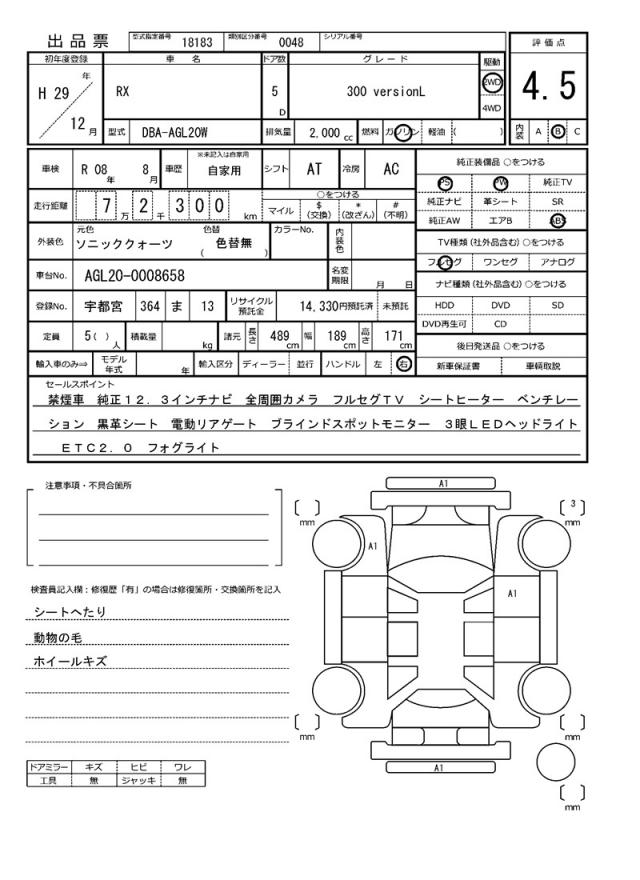 出品票 型式指定番号 18183 類別区分番号 0048 シリアル番号
評価点
4.5
内装 A B C
初年度登録 車名 ドア数 グレード 駆動
H 29 年 12 月 RX 5 D 300 versionL 2WD 4WD
型式 DBA-AGL20W 排気量 2,000 cc 燃料 ガソリン 軽油 ( )
車検 R 08 年 8 月 車歴 ※未記入は自家用 自家用 シフト AT 冷房 AC
走行距離 7 万 2 千 3 0 0 km ○をつける マイル $ (交換) * (改ざん) # (不明)
外装色 元色 ソニッククォーツ 色替 ( 色替無 ) カラーNo. 内装色
車台No. AGL20-0008658 名変期限 月 日
登録No. 宇都宮 364 ま 13 リサイクル預託金 14,330円預託済 未預託
定員 5( ) 人 積載量 kg 諸元 長さ 489 cm 幅 189 cm 高さ 171 cm
輸入車のみ⇒ モデル年式 年 輸入区分 ディーラー 並行 ハンドル 左 右
純正装備品 ○をつける
PS PW 純正TV
純正ナビ 革シート SR
純正AW エアB ABS
TV種類(社外品含む) ○をつける
フルセグ ワンセグ アナログ
ナビ種類(社外品含む) ○をつける
HDD DVD SD
DVD再生可 CD
後日発送品 ○をつける
新車保証書 車輌取説
セールスポイント
禁煙車 純正12.3インチナビ 全周囲カメラ フルセグTV シートヒーター ベンチレー
ション 黒革シート 電動リアゲート ブラインドスポットモニター 3眼LEDヘッドライト
ETC2.0 フォグライト
注意事項・不具合箇所
検査員記入欄:修復歴「有」の場合は修復箇所・交換箇所を記入
シートへたり
動物の毛
ホイールキズ
ドアミラー キズ ヒビ ワレ
工具 無 ジャッキ 無
A1
[ ] mm
[ 3 ] mm
A1
A1
[ ] mm
[ ] mm
A1
[ ] mm